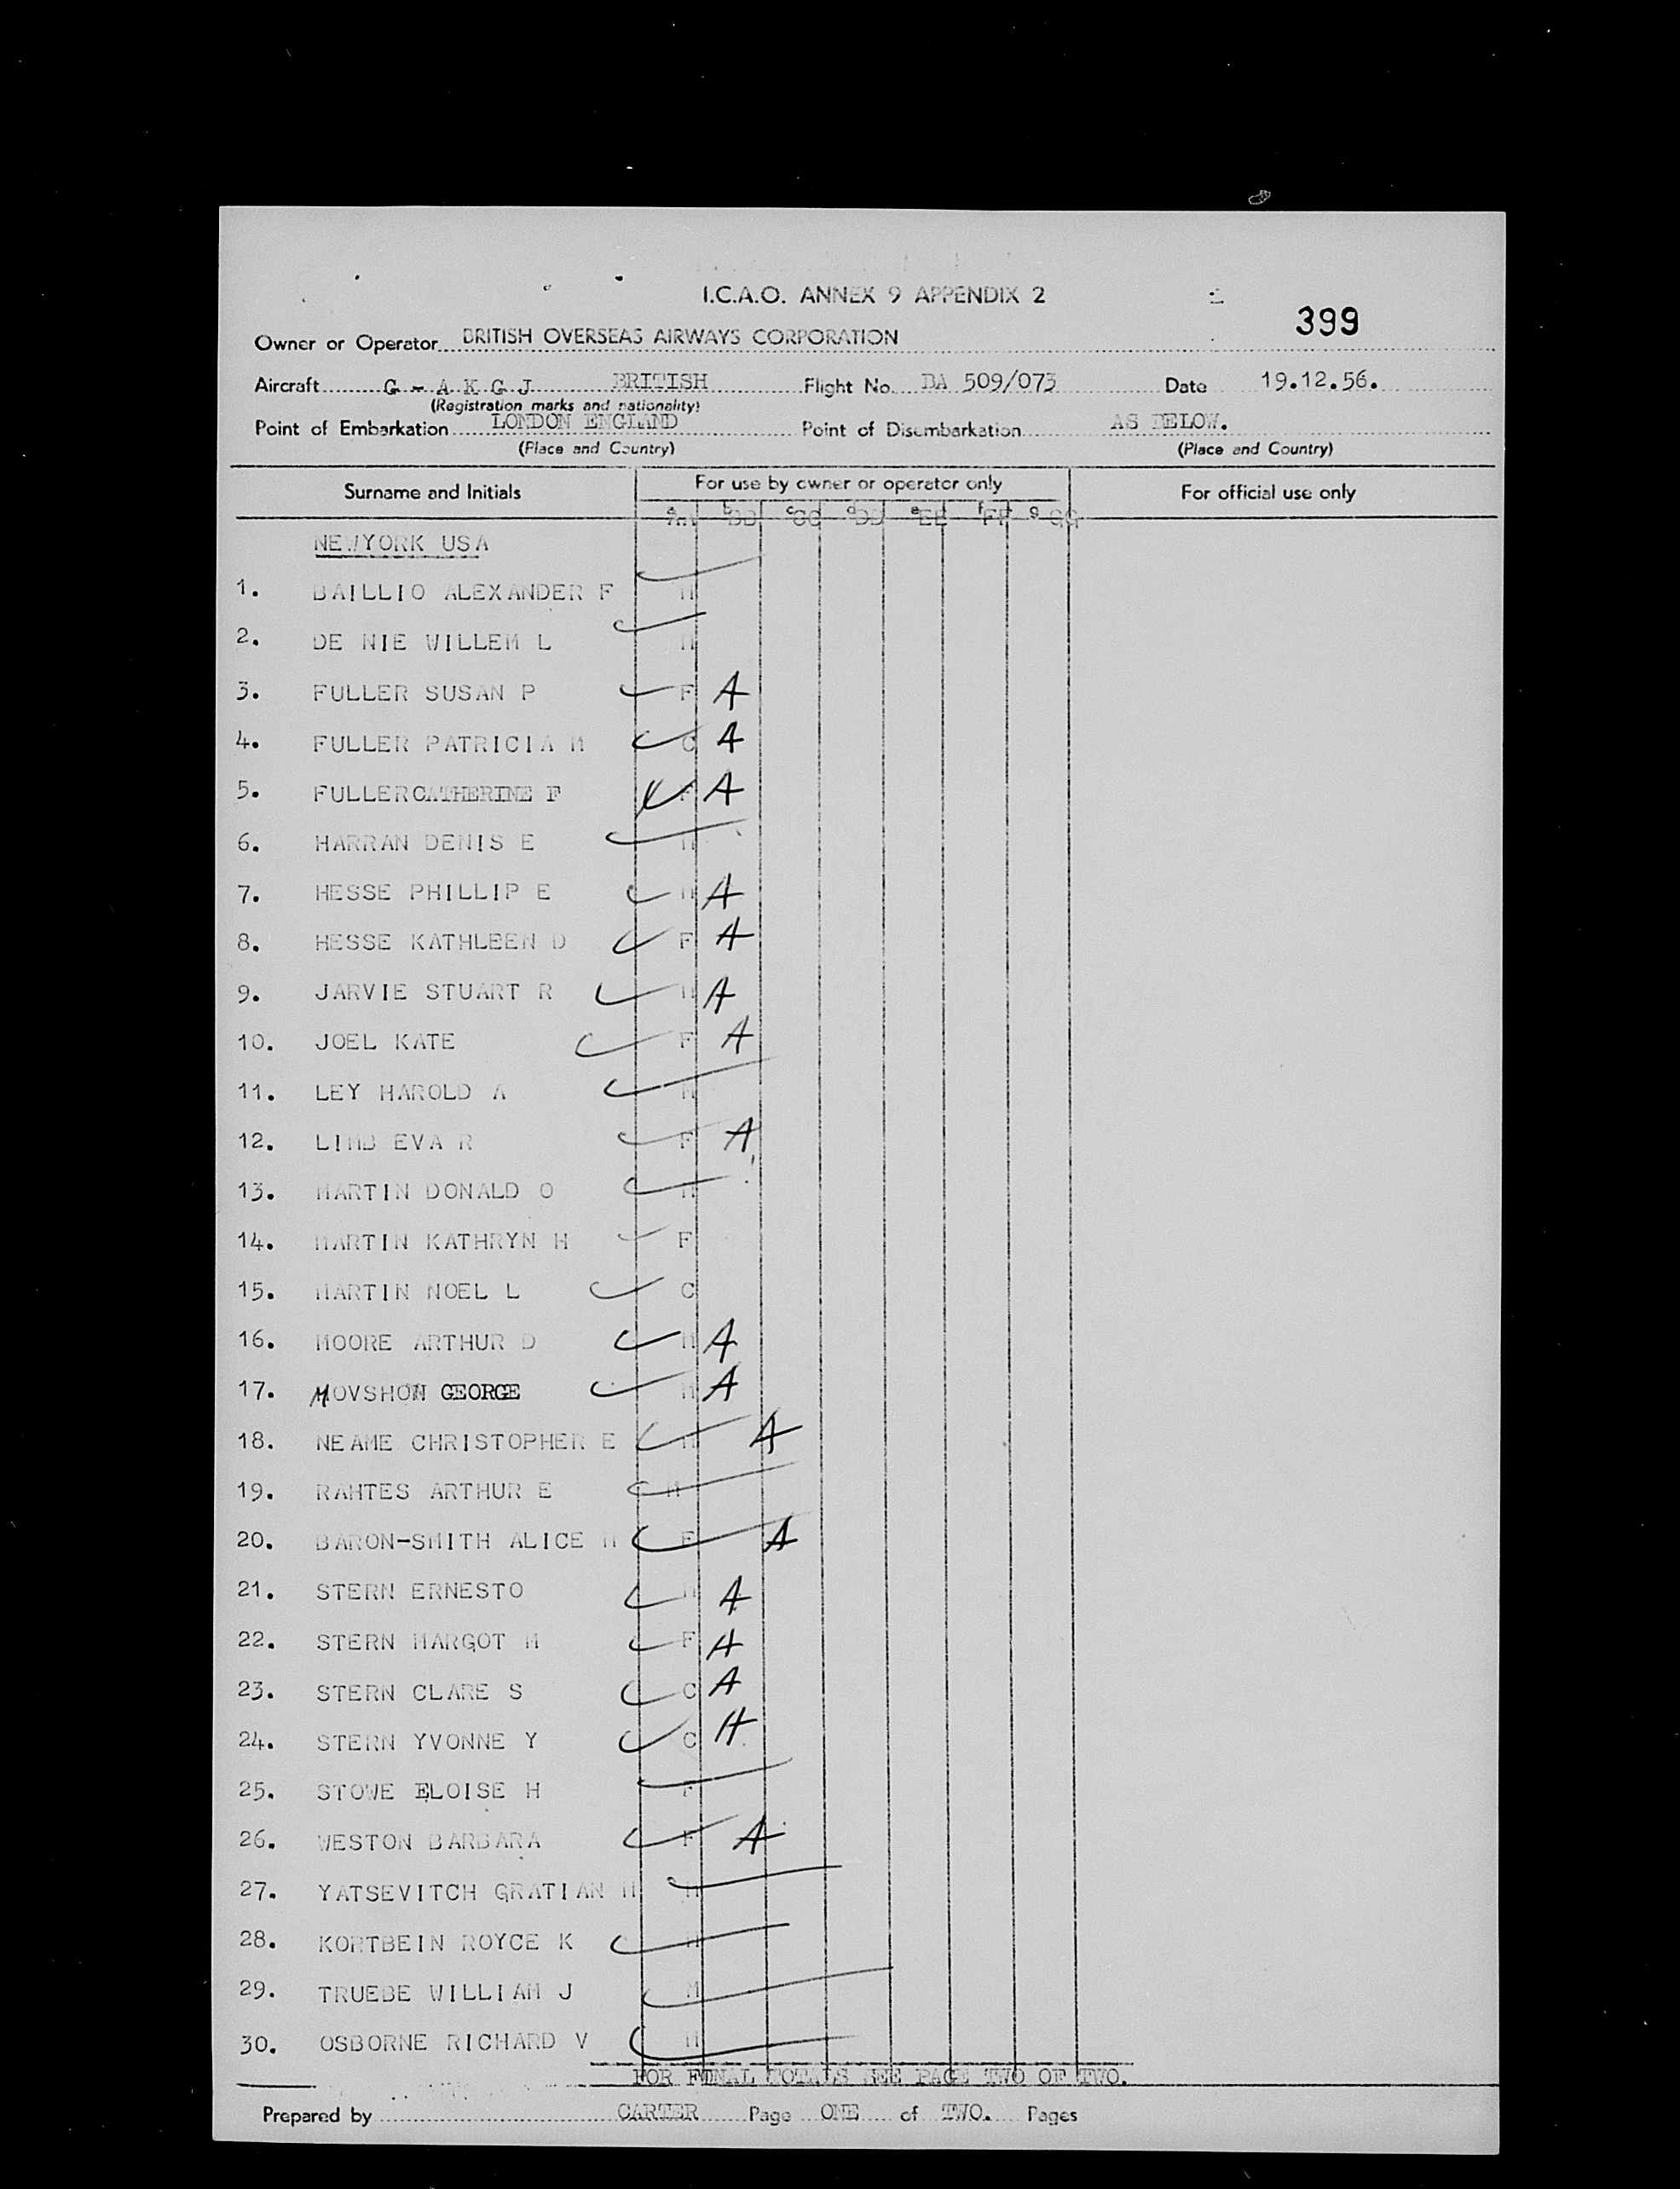 I.C.A.O. ANNEX 9 APPENDIX 2
399
Owner or Operator BRITISH OVERSEAS AIRWAYS CORPORATION
Aircraft G - A K G J BRITISH Flight No. BA 509/073 Date 19.12.56.
(Registration marks and nationality)
Point of Embarkation LONDON ENGLAND Point of Disembarkation AS BELOW.
(Place and Country) (Place and Country)
Surname and Initials For use by owner or operator only For official use only
a b c d e f g
AA BB CC DD EE FF GG
NEWYORK USA
1. BAILLIO ALEXANDER F M
2. DE NIE WILLEM L M
3. FULLER SUSAN P F A
4. FULLER PATRICIA M C A
5. FULLER CATHERINE F F A
6. HARRAN DENIS E M
7. HESSE PHILLIP E M A
8. HESSE KATHLEEN D F A
9. JARVIE STUART R M A
10. JOEL KATE F A
11. LEY HAROLD A M
12. LIMB EVA R F A
13. MARTIN DONALD O M
14. MARTIN KATHRYN H F
15. MARTIN NOEL L C
16. MOORE ARTHUR D M A
17. MOVSHON GEORGE M A
18. NEAME CHRISTOPHER E M A
19. RAHTES ARTHUR E M
20. BARON-SMITH ALICE M F A
21. STERN ERNESTO M A
22. STERN MARGOT M F A
23. STERN CLARE S C A
24. STERN YVONNE Y C A
25. STOWE ELOISE H F
26. WESTON BARBARA F A
27. YATSEVITCH GRATIAN M M
28. KORTBEIN ROYCE K M
29. TRUEBE WILLIAM J M
30. OSBORNE RICHARD V M
FOR FINAL TOTALS SEE PAGE TWO OF TWO.
Prepared by CARTER Page ONE of TWO. Pages